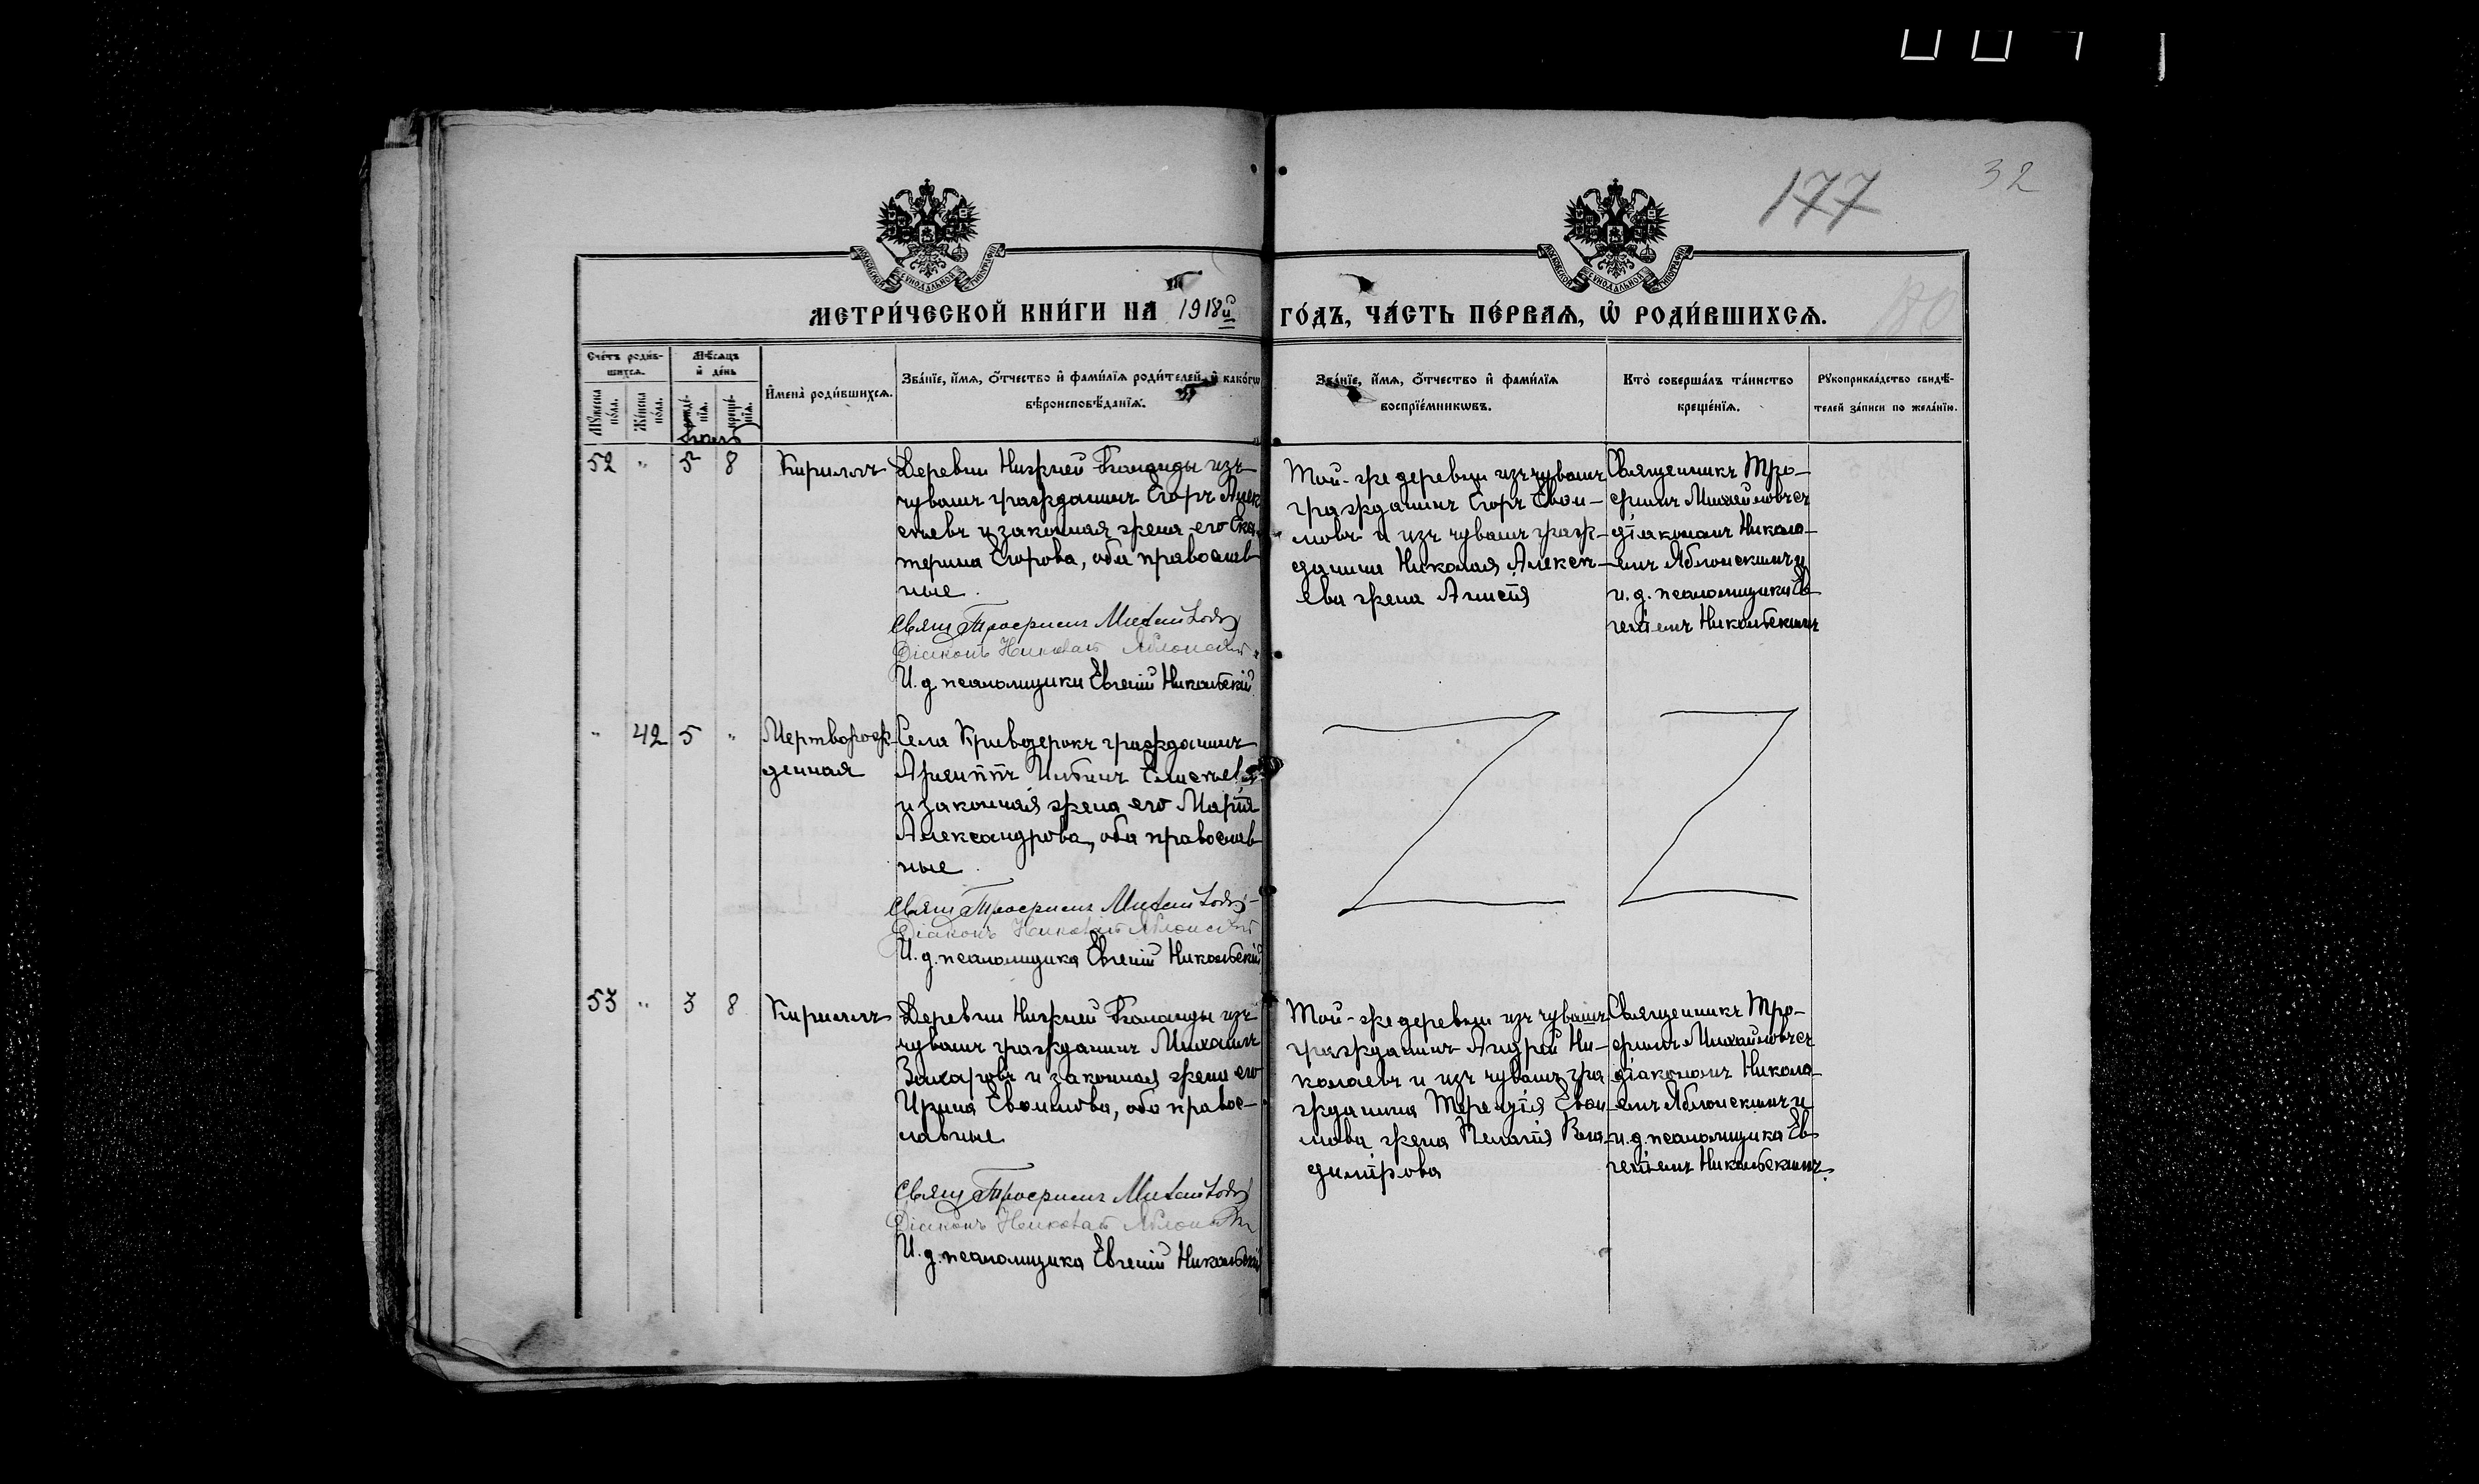 177
32
МЕТРИ́ЧЕСКОЙ КНИ́ГИ НА 1918й ГО́ДЪ, ЧА́СТЬ ПЕ́РВАЯ, Ѡ҆ РОДИ́ВШИХСЯ.
Сче́тъ роди́в-
шихся.
Му́жеска
по́ла.
Же́нска
по́ла.
Мѣ́сяцъ
и҆ де́нь
рожде́-
нїя.
креще́-
нїя.
И҆мена̀ роди́вшихся.
Зва́нїе, и҆́мя, ѻ҆́тчество и҆ фами́лїя роди́телей, и҆ како́гѡ
вѣроисповѣ́данїя.
Зва́нїе, и҆́мя, ѻ҆́тчество и҆ фами́лїя
воспрїе́мникѡвъ.
Кто̀ соверша́лъ та́инство
креще́нїя.
Рꙋкоприкла́дство свидѣ́-
телей за́писи по жела́нїю.
52 " 5 8
Кириллъ
Деревни Нижней Команды изъ
чувашъ гражданинъ Егоръ Алек
сѣевъ и законная жена его Ека
терина Егорова, оба православ
ные.
Свящ Трофимъ Михайловъ
Діаконъ Николай Яблонскій
И. д. псаломщика Евгеній Никольскій
Той-же деревни изъ чувашъ
гражданинъ Егоръ Евои-
мовъ и изъ чувашъ граж-
данина Николая Алексѣ-
ева жена Анисія
Священникъ Тро-
фимъ Михайловъ съ
діакономъ Никола-
емъ Яблонскимъ и
и. д. псаломщика Ев
геніемъ Никольскимъ
" 42 5 "
Мертворож-
денная
Села Кривозерокъ гражданинъ
и законная жена его Марія
Александрова, оба православ
ные.
Свящ Трофимъ Михайловъ
Діаконъ Николай Яблонскій
И. д. псаломщика Евгеній Никольскій
53 " 3 8
Кириллъ
Деревни Нижней Команды изъ
чувашъ гражданинъ Михаилъ
Захаровъ и законная жена его
Ирина Евоимова, оба правос-
лавные
Свящ Трофимъ Михайловъ
Діаконъ Николай Яблонскій
И. д. псаломщика Евгеній Никольскій
Той-же деревни изъ чувашъ
гражданинъ Андрей Ни-
колаевъ и изъ чувашъ гра
жданина Терентія Евои
мова жена Пелагія Вла-
димірова
Священникъ Тро-
фимъ Михайловъ съ
діакономъ Никола-
емъ Яблонскимъ и
и. д. псаломщика Ев
геніемъ Никольскимъ.